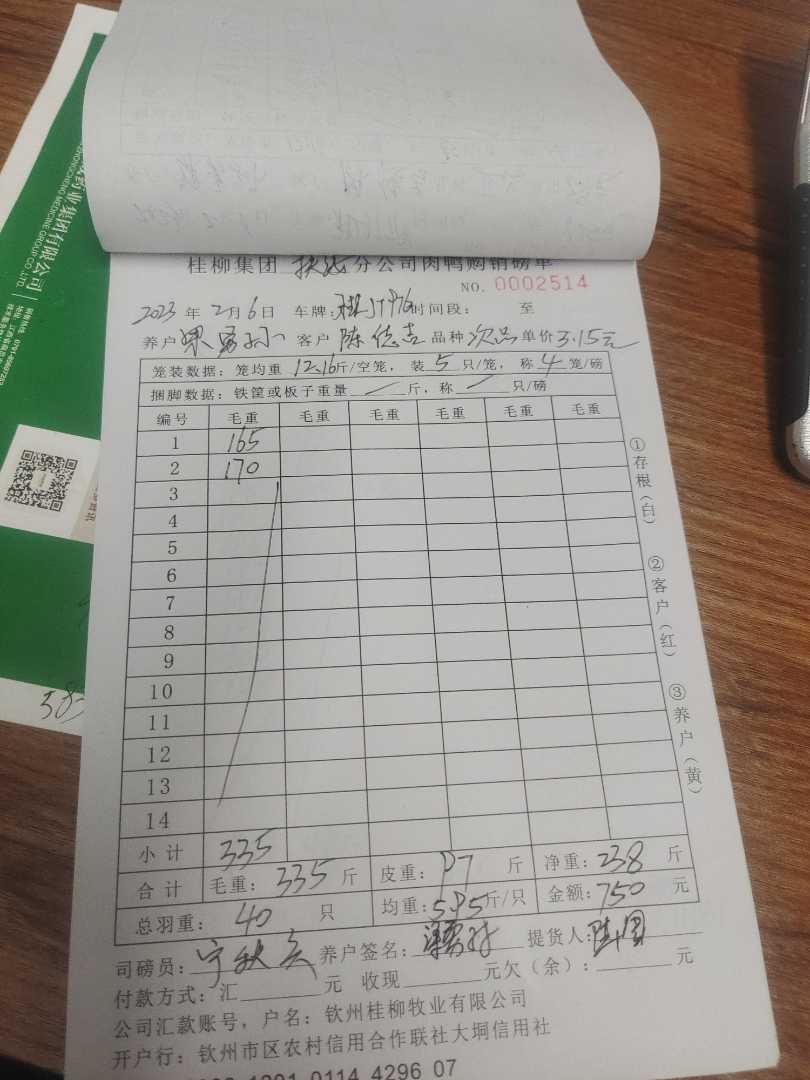 药业集团有限公司
ZHONGCHENG MEDICINE GROUP CO.,LTD.
585
桂柳集团 扶绥 分公司肉鸭购销磅单
NO. 0002514
2023 年 2月6日 车牌: 时间段: 至
养户 客户 陈德吉 品种 次品 单价 3.15元
笼装数据: 笼均重 12.16斤/空笼, 装 5 只/笼, 称 4 笼/磅
捆脚数据: 铁筐或板子重量 / 斤, 称 / 只/磅
编号 毛重 毛重 毛重 毛重 毛重
1 165
2 170
3
4
5
6
7
8
9
10
11
12
13
14
小计 335
合计 毛重: 335 斤 皮重: 97 斤 净重: 238 斤
总羽重: 40 只 均重: 5.95斤/只 金额: 750 元
司磅员: 养户签名: 提货人:
付款方式: 汇 元 收现 元欠(余): 元
公司汇款账号, 户名: 钦州桂柳牧业有限公司
开户行: 钦州市区农村信用合作联社大垌信用社
0114 4296 07
①存根(白)
②客户(红)
③养户(黄)